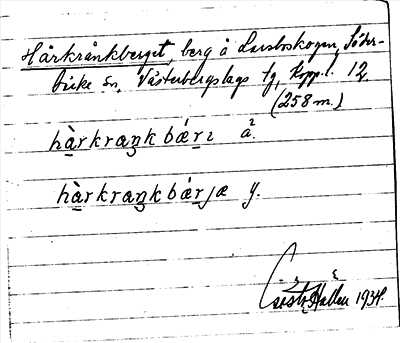 Hårkrånkberget, berg å Larsboskogen, Söder-
bärke sn, Västerbergslags tg, Kopp. l. 12.
(258 m.)
hàrkraŋkbá̤rı ä.
hàrkraŋkbá̤rjæ y.
Hallén 1934.